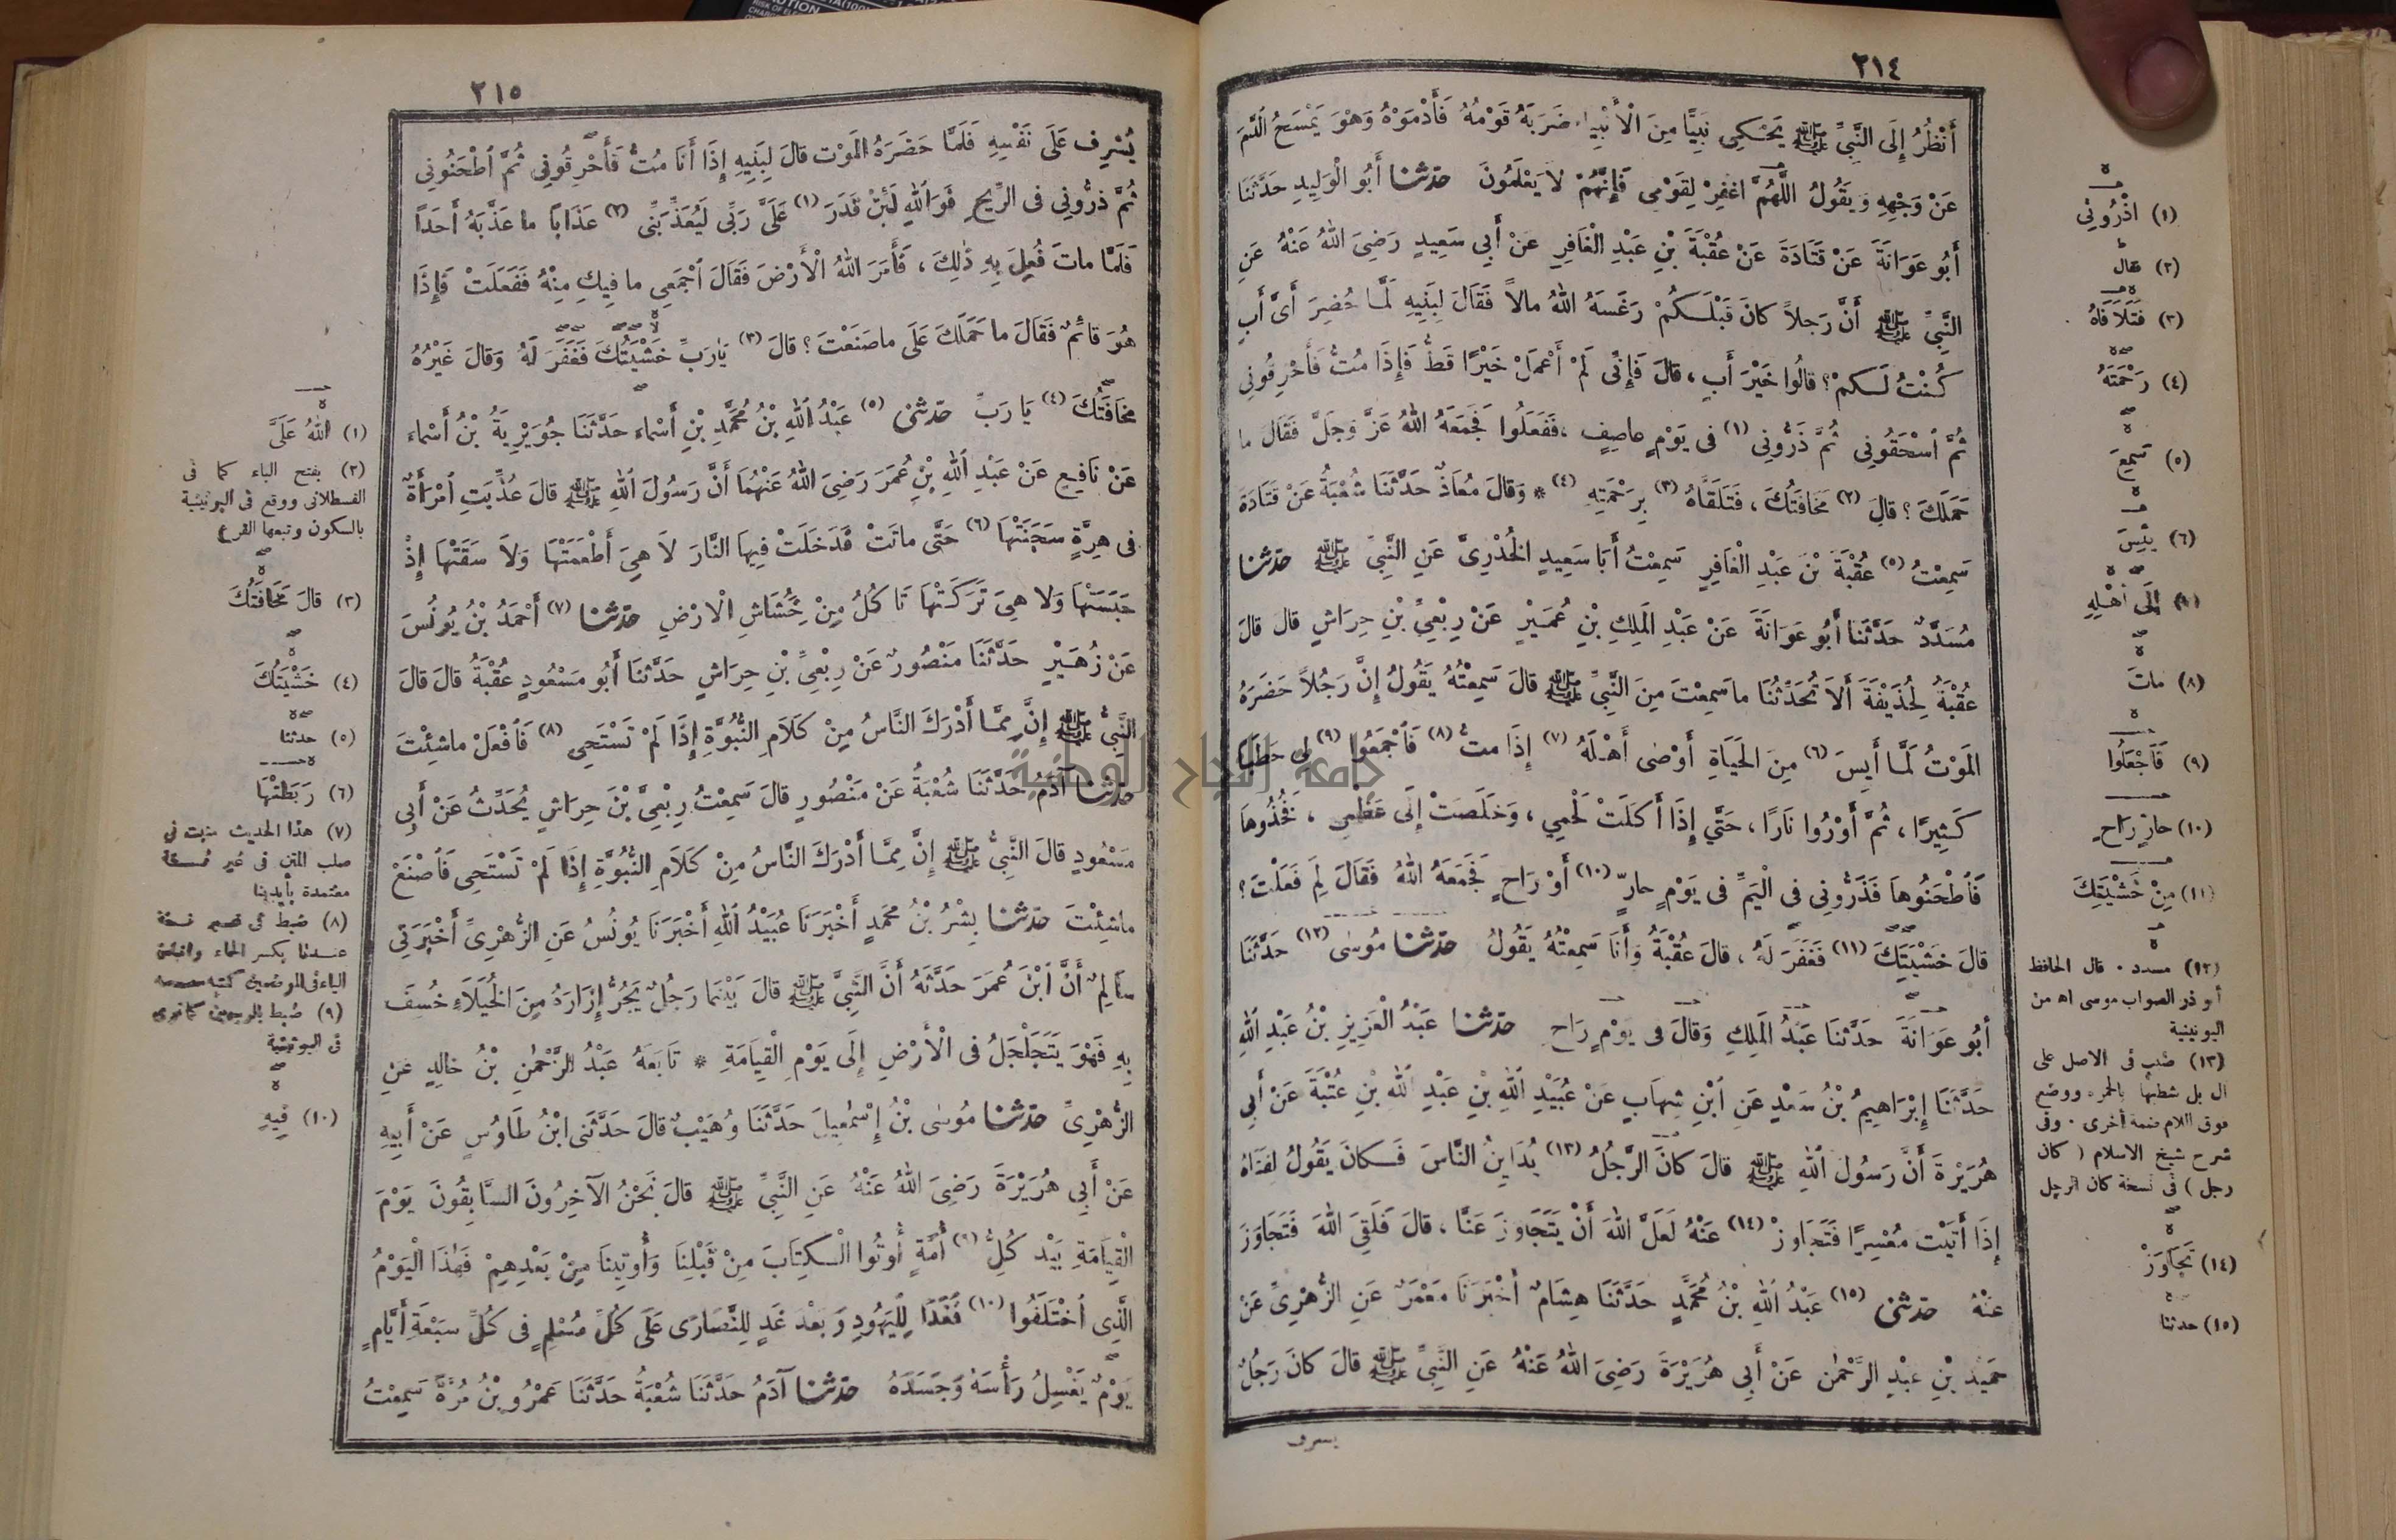 ٢١٤
أَنْظُرُ إِلَى النَّبِيِّ ﷺ يَحْكِي نَبِيًّا مِنَ الْأَنْبِيَاءِ ضَرَبَهُ قَوْمُهُ فَأَدْمَوْهُ وَهْوَ يَمْسَحُ الدَّمَ
عَنْ وَجْهِهِ وَيَقُولُ اللَّهُمَّ اغْفِرْ لِقَوْمِي فَإِنَّهُمْ لَا يَعْلَمُونَ حَدَّثَنَا أَبُو الْوَلِيدِ حَدَّثَنَا
أَبُو عَوَانَةَ عَنْ قَتَادَةَ عَنْ عُقْبَةَ بْنِ عَبْدِ الْغَافِرِ عَنْ أَبِي سَعِيدٍ رَضِيَ اللهُ عَنْهُ عَنِ
النَّبِيِّ ﷺ أَنَّ رَجُلاً كَانَ قَبْلَكُمْ رَغَسَهُ اللهُ مَالاً فَقَالَ لِبَنِيهِ لَمَّا حُضِرَ أَيَّ أَبٍ
كُنْتُ لَكُمْ؟ قَالُوا خَيْرَ أَبٍ، قَالَ فَإِنِّي لَمْ أَعْمَلْ خَيْرًا قَطُّ فَإِذَا مُتُّ فَأَحْرِقُونِي
ثُمَّ اسْحَقُونِي ثُمَّ ذَرُّونِي (١) فِي يَوْمٍ عَاصِفٍ، فَفَعَلُوا فَجَمَعَهُ اللهُ عَزَّ وَجَلَّ فَقَالَ مَا
حَمَلَكَ؟ قَالَ (٢) مَخَافَتُكَ، فَتَلَقَّاهُ (٣) بِرَحْمَتِهِ (٤) * وَقَالَ مُعَاذٌ حَدَّثَنَا شُعْبَةُ عَنْ قَتَادَةَ
سَمِعْتُ (٥) عُقْبَةَ بْنَ عَبْدِ الْغَافِرِ سَمِعْتُ أَبَا سَعِيدٍ الْخُدْرِيَّ عَنِ النَّبِيِّ ﷺ حَدَّثَنَا
مُسَدَّدٌ حَدَّثَنَا أَبُو عَوَانَةَ عَنْ عَبْدِ الْمَلِكِ بْنِ عُمَيْرٍ عَنْ رِبْعِيِّ بْنِ حِرَاشٍ قَالَ قَالَ
عُقْبَةُ لِحُذَيْفَةَ أَلَا تُحَدِّثُنَا مَا سَمِعْتَ مِنَ النَّبِيِّ ﷺ قَالَ سَمِعْتُهُ يَقُولُ إِنَّ رَجُلاً حَضَرَهُ
الْمَوْتُ لَمَّا أَيِسَ (٦) مِنَ الْحَيَاةِ أَوْصَى أَهْلَهُ (٧) إِذَا مُتُّ (٨) فَاجْمَعُوا (٩) لِي حَطَبًا
كَثِيرًا، ثُمَّ أَوْرُوا نَارًا، حَتَّى إِذَا أَكَلَتْ لَحْمِي، وَخَلَصَتْ إِلَى عَظْمِي، فَخُذُوهَا
فَاطْحَنُوهَا فَذَرُّونِي فِي الْيَمِّ فِي يَوْمٍ حَارٍّ (١٠) أَوْ رَاحٍ فَجَمَعَهُ اللهُ فَقَالَ لِمَ فَعَلْتَ؟
قَالَ خَشْيَتَكَ (١١) فَغَفَرَ لَهُ، قَالَ عُقْبَةُ وَأَنَا سَمِعْتُهُ يَقُولُ حَدَّثَنَا مُوسَى (١٢) حَدَّثَنَا
أَبُو عَوَانَةَ حَدَّثَنَا عَبْدُ الْمَلِكِ وَقَالَ فِي يَوْمٍ رَاحٍ حَدَّثَنَا عَبْدُ الْعَزِيزِ بْنُ عَبْدِ اللهِ
حَدَّثَنَا إِبْرَاهِيمُ بْنُ سَعْدٍ عَنِ ابْنِ شِهَابٍ عَنْ عُبَيْدِ اللهِ بْنِ عَبْدِ اللهِ بْنِ عُتْبَةَ عَنْ أَبِي
هُرَيْرَةَ أَنَّ رَسُولَ اللهِ ﷺ قَالَ كَانَ الرَّجُلُ (١٣) يُدَايِنُ النَّاسَ فَكَانَ يَقُولُ لِفَتَاهُ
إِذَا أَتَيْتَ مُعْسِرًا فَتَجَاوَزْ (١٤) عَنْهُ لَعَلَّ اللهَ أَنْ يَتَجَاوَزَ عَنَّا، قَالَ فَلَقِيَ اللهَ فَتَجَاوَزَ
عَنْهُ حَدَّثَنِي (١٥) عَبْدُ اللهِ بْنُ مُحَمَّدٍ حَدَّثَنَا هِشَامٌ أَخْبَرَنَا مَعْمَرٌ عَنِ الزُّهْرِيِّ عَنْ
حُمَيْدِ بْنِ عَبْدِ الرَّحْمٰنِ عَنْ أَبِي هُرَيْرَةَ رَضِيَ اللهُ عَنْهُ عَنِ النَّبِيِّ ﷺ قَالَ كَانَ رَجُلٌ
يسرف
(١) اذْرُونِي
(٢) فقال
(٣) فَتَلَافَاهُ
(٤) رَحْمَتُهُ
(٥) سَمِعَ
(٦) يَئِسَ
(٧) إِلَى أَهْلِهِ
(٨) مَاتَ
(٩) فَاجْعَلُوا
(١٠) حَازٍ رَاحٍ
(١١) مِنْ خَشْيَتِكَ
(١٢) مسدد. قال الحافظ
أبو ذر الصواب موسى اه من
اليونينية
(١٣) ضُبب في الاصل على
ال بل شطبها بالحمرة ووضع
فوق اللام ضمة أخرى. وفي
شرح شيخ الاسلام (كان
رجل) في نسخة كان الرجل
(١٤) تَجَاوَزْ
(١٥) حدثنا
٢١٥
يُسْرِفُ عَلَى نَفْسِهِ فَلَمَّا حَضَرَهُ الْمَوْتُ قَالَ لِبَنِيهِ إِذَا أَنَا مُتُّ فَأَحْرِقُونِي ثُمَّ اطْحَنُونِي
ثُمَّ ذَرُّونِي فِي الرِّيحِ فَوَاللهِ لَئِنْ قَدَرَ (١) عَلَيَّ رَبِّي لَيُعَذِّبَنِّي (٢) عَذَابًا مَا عَذَّبَهُ أَحَدًا
فَلَمَّا مَاتَ فُعِلَ بِهِ ذٰلِكَ، فَأَمَرَ اللهُ الْأَرْضَ فَقَالَ اجْمَعِي مَا فِيكِ مِنْهُ فَفَعَلَتْ فَإِذَا
هُوَ قَائِمٌ فَقَالَ مَا حَمَلَكَ عَلَى مَا صَنَعْتَ؟ قَالَ (٣) يَا رَبِّ خَشْيَتُكَ فَغَفَرَ لَهُ وَقَالَ غَيْرُهُ
مَخَافَتُكَ (٤) يَا رَبِّ حَدَّثَنِي (٥) عَبْدُ اللهِ بْنُ مُحَمَّدِ بْنِ أَسْمَاءَ حَدَّثَنَا جُوَيْرِيَةُ بْنُ أَسْمَاءَ
عَنْ نَافِعٍ عَنْ عَبْدِ اللهِ بْنِ عُمَرَ رَضِيَ اللهُ عَنْهُمَا أَنَّ رَسُولَ اللهِ ﷺ قَالَ عُذِّبَتِ امْرَأَةٌ
فِي هِرَّةٍ سَجَنَتْهَا (٦) حَتَّى مَاتَتْ فَدَخَلَتْ فِيهَا النَّارَ لَا هِيَ أَطْعَمَتْهَا وَلَا سَقَتْهَا إِذْ
حَبَسَتْهَا وَلَا هِيَ تَرَكَتْهَا تَأْكُلُ مِنْ خَشَاشِ الْأَرْضِ حَدَّثَنَا (٧) أَحْمَدُ بْنُ يُونُسَ
عَنْ زُهَيْرٍ حَدَّثَنَا مَنْصُورٌ عَنْ رِبْعِيِّ بْنِ حِرَاشٍ حَدَّثَنَا أَبُو مَسْعُودٍ عُقْبَةُ قَالَ قَالَ
النَّبِيُّ ﷺ إِنَّ مِمَّا أَدْرَكَ النَّاسُ مِنْ كَلَامِ النُّبُوَّةِ إِذَا لَمْ تَسْتَحِي (٨) فَافْعَلْ مَا شِئْتَ
حَدَّثَنَا آدَمُ حَدَّثَنَا شُعْبَةُ عَنْ مَنْصُورٍ قَالَ سَمِعْتُ رِبْعِيَّ بْنَ حِرَاشٍ يُحَدِّثُ عَنْ أَبِي
مَسْعُودٍ قَالَ النَّبِيُّ ﷺ إِنَّ مِمَّا أَدْرَكَ النَّاسُ مِنْ كَلَامِ النُّبُوَّةِ إِذَا لَمْ تَسْتَحِي فَاصْنَعْ
مَا شِئْتَ حَدَّثَنَا بِشْرُ بْنُ مُحَمَّدٍ أَخْبَرَنَا عُبَيْدُ اللهِ أَخْبَرَنَا يُونُسُ عَنِ الزُّهْرِيِّ أَخْبَرَنِي
سَالِمٌ أَنَّ ابْنَ عُمَرَ حَدَّثَهُ أَنَّ النَّبِيَّ ﷺ قَالَ بَيْنَمَا رَجُلٌ يَجُرُّ إِزَارَهُ مِنَ الْخُيَلَاءِ خُسِفَ
بِهِ فَهْوَ يَتَجَلْجَلُ فِي الْأَرْضِ إِلَى يَوْمِ الْقِيَامَةِ * تَابَعَهُ عَبْدُ الرَّحْمٰنِ بْنُ خَالِدٍ عَنِ
الزُّهْرِيِّ حَدَّثَنَا مُوسَى بْنُ إِسْمٰعِيلَ حَدَّثَنَا وُهَيْبٌ قَالَ حَدَّثَنِي ابْنُ طَاوُسٍ عَنْ أَبِيهِ
عَنْ أَبِي هُرَيْرَةَ رَضِيَ اللهُ عَنْهُ عَنِ النَّبِيِّ ﷺ قَالَ نَحْنُ الْآخِرُونَ السَّابِقُونَ يَوْمَ
الْقِيَامَةِ بَيْدَ كُلُّ (٩) أُمَّةٍ أُوتُوا الْكِتَابَ مِنْ قَبْلِنَا وَأُوتِينَا مِنْ بَعْدِهِمْ فَهٰذَا الْيَوْمُ
الَّذِي اخْتَلَفُوا (١٠) فَغَدًا لِلْيَهُودِ وَبَعْدَ غَدٍ لِلنَّصَارَى عَلَى كُلِّ مُسْلِمٍ فِي كُلِّ سَبْعَةِ أَيَّامٍ
يَوْمٌ يَغْسِلُ رَأْسَهُ وَجَسَدَهُ حَدَّثَنَا آدَمُ حَدَّثَنَا شُعْبَةُ حَدَّثَنَا عَمْرُو بْنُ مُرَّةَ سَمِعْتُ
(١) اللهُ عَلَيَّ
(٢) بفتح الباء كما في
القسطلاني ووقع في اليونينية
بالسكون وتبعها الفرع
(٣) قَالَ مَخَافَتُكَ
(٤) خَشْيَتُكَ
(٥) حدثنا
(٦) رَبَطَتْهَا
(٧) هذا الحديث مثبت في
صلب المتن في غير نسخة
معتمدة بأيدينا
(٨) ضبط في نسخة
عندنا بكسر الحاء واثبات
الياء في الموضعين كتبه مصححه
(٩) ضُبط بالوجهين كما ترى
في اليونينية
(١٠) فِيهِ
جامعة النجاح الوطنية